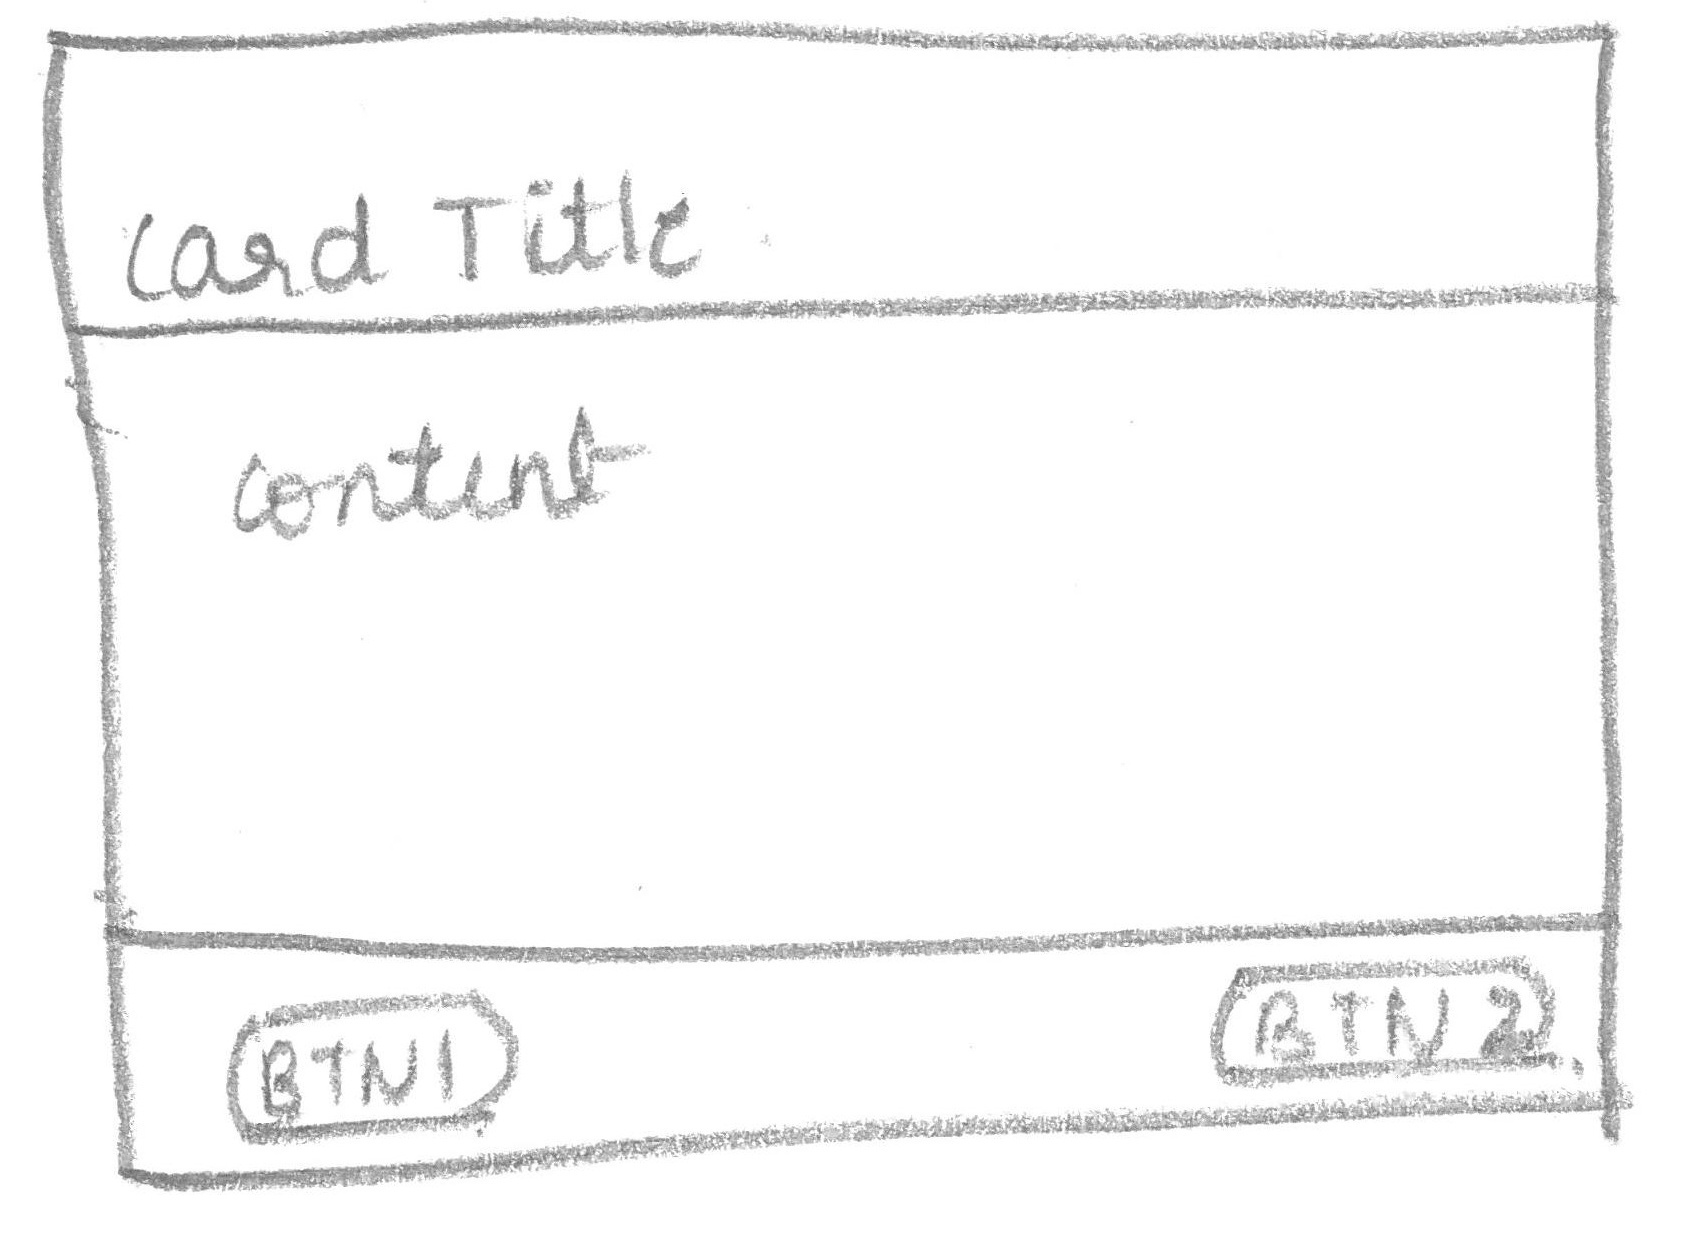 Card Title
content
BTN1
BTN 2